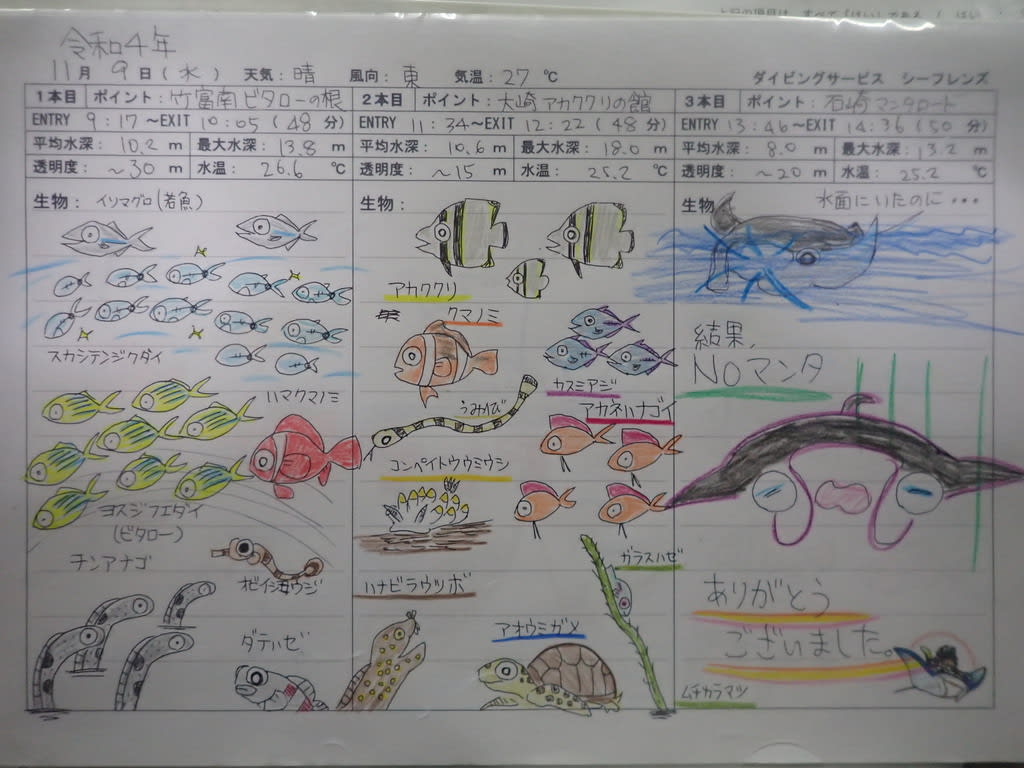 上記の項目は、すべて「はい」である
令和4年
11月 9日(水) 天気:晴 風向:東 気温:27 ℃ ダイビングサービス シーフレンズ
1本目 ポイント:竹富南ビタローの根
ENTRY 9:17~EXIT 10:05(48分)
平均水深:10.2 m 最大水深:13.8 m
透明度: ~30 m 水温: 26.6 ℃
生物: イソマグロ(若魚)
スカシテンジクダイ
ハマクマノミ
ヨスジフエダイ
(ビタロー)
チンアナゴ
オビイシヨウジ
ダテハゼ
2本目 ポイント:大崎アカククリの館
ENTRY 11:34~EXIT 12:22(48分)
平均水深:10.6 m 最大水深:18.0 m
透明度: ~15 m 水温: 25.2 ℃
生物:
アカククリ
クマノミ
カスミアジ
うみへび
アカネハナゴイ
コンペイトウウミウシ
ガラスハゼ
ハナビラウツボ
アオウミガメ
3本目 ポイント:石崎マンタロード
ENTRY 13:46~EXIT 14:36(50分)
平均水深:8.0 m 最大水深:13.2 m
透明度: ~20 m 水温: 25.2 ℃
生物 水面にいたのに・・・
結果、
NOマンタ
ありがとう
ございました。
ムチカラマツ